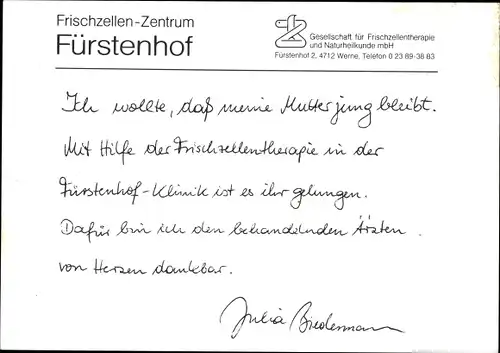 Frischzellen-Zentrum
Fürstenhof
Gesellschaft für Frischzellentherapie
und Naturheilkunde mbH
Fürstenhof 2, 4712 Werne, Telefon 0 23 89-38 83
Ich wollte, daß meine Mutter jung bleibt.
Mit Hilfe der Frischzellentherapie in der
Fürstenhof-Klinik ist es ihr gelungen.
Dafür bin ich den behandelnden Ärzten
von Herzen dankbar.
Julia Biedermann